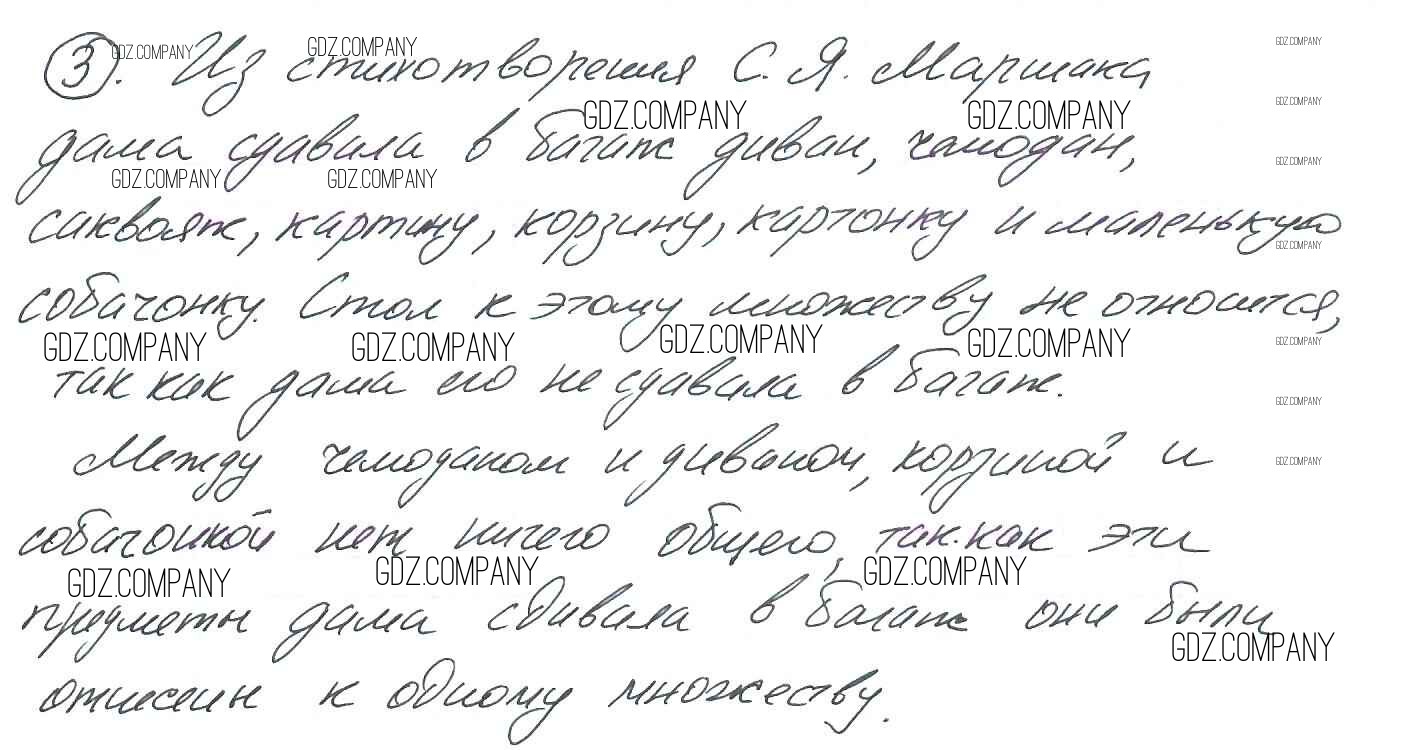 3. Из стихотворения С. Я. Маршака
дама сдавала в багаж диван, чемодан,
саквояж, картину, корзину, картонку и маленькую
собачонку. Стол к этому множеству не относится,
так как дама его не сдавала в багаж.
Между чемоданом и диваном, корзиной и
собачонкой нет ничего общего, так как эти
предметы дама сдавала в багаж они были
отнесены к одному множеству.
GDZ.COMPANY GDZ.COMPANY GDZ.COMPANY
GDZ.COMPANY GDZ.COMPANY GDZ.COMPANY
GDZ.COMPANY GDZ.COMPANY GDZ.COMPANY
GDZ.COMPANY
GDZ.COMPANY GDZ.COMPANY GDZ.COMPANY GDZ.COMPANY GDZ.COMPANY
GDZ.COMPANY
GDZ.COMPANY
GDZ.COMPANY GDZ.COMPANY GDZ.COMPANY
GDZ.COMPANY